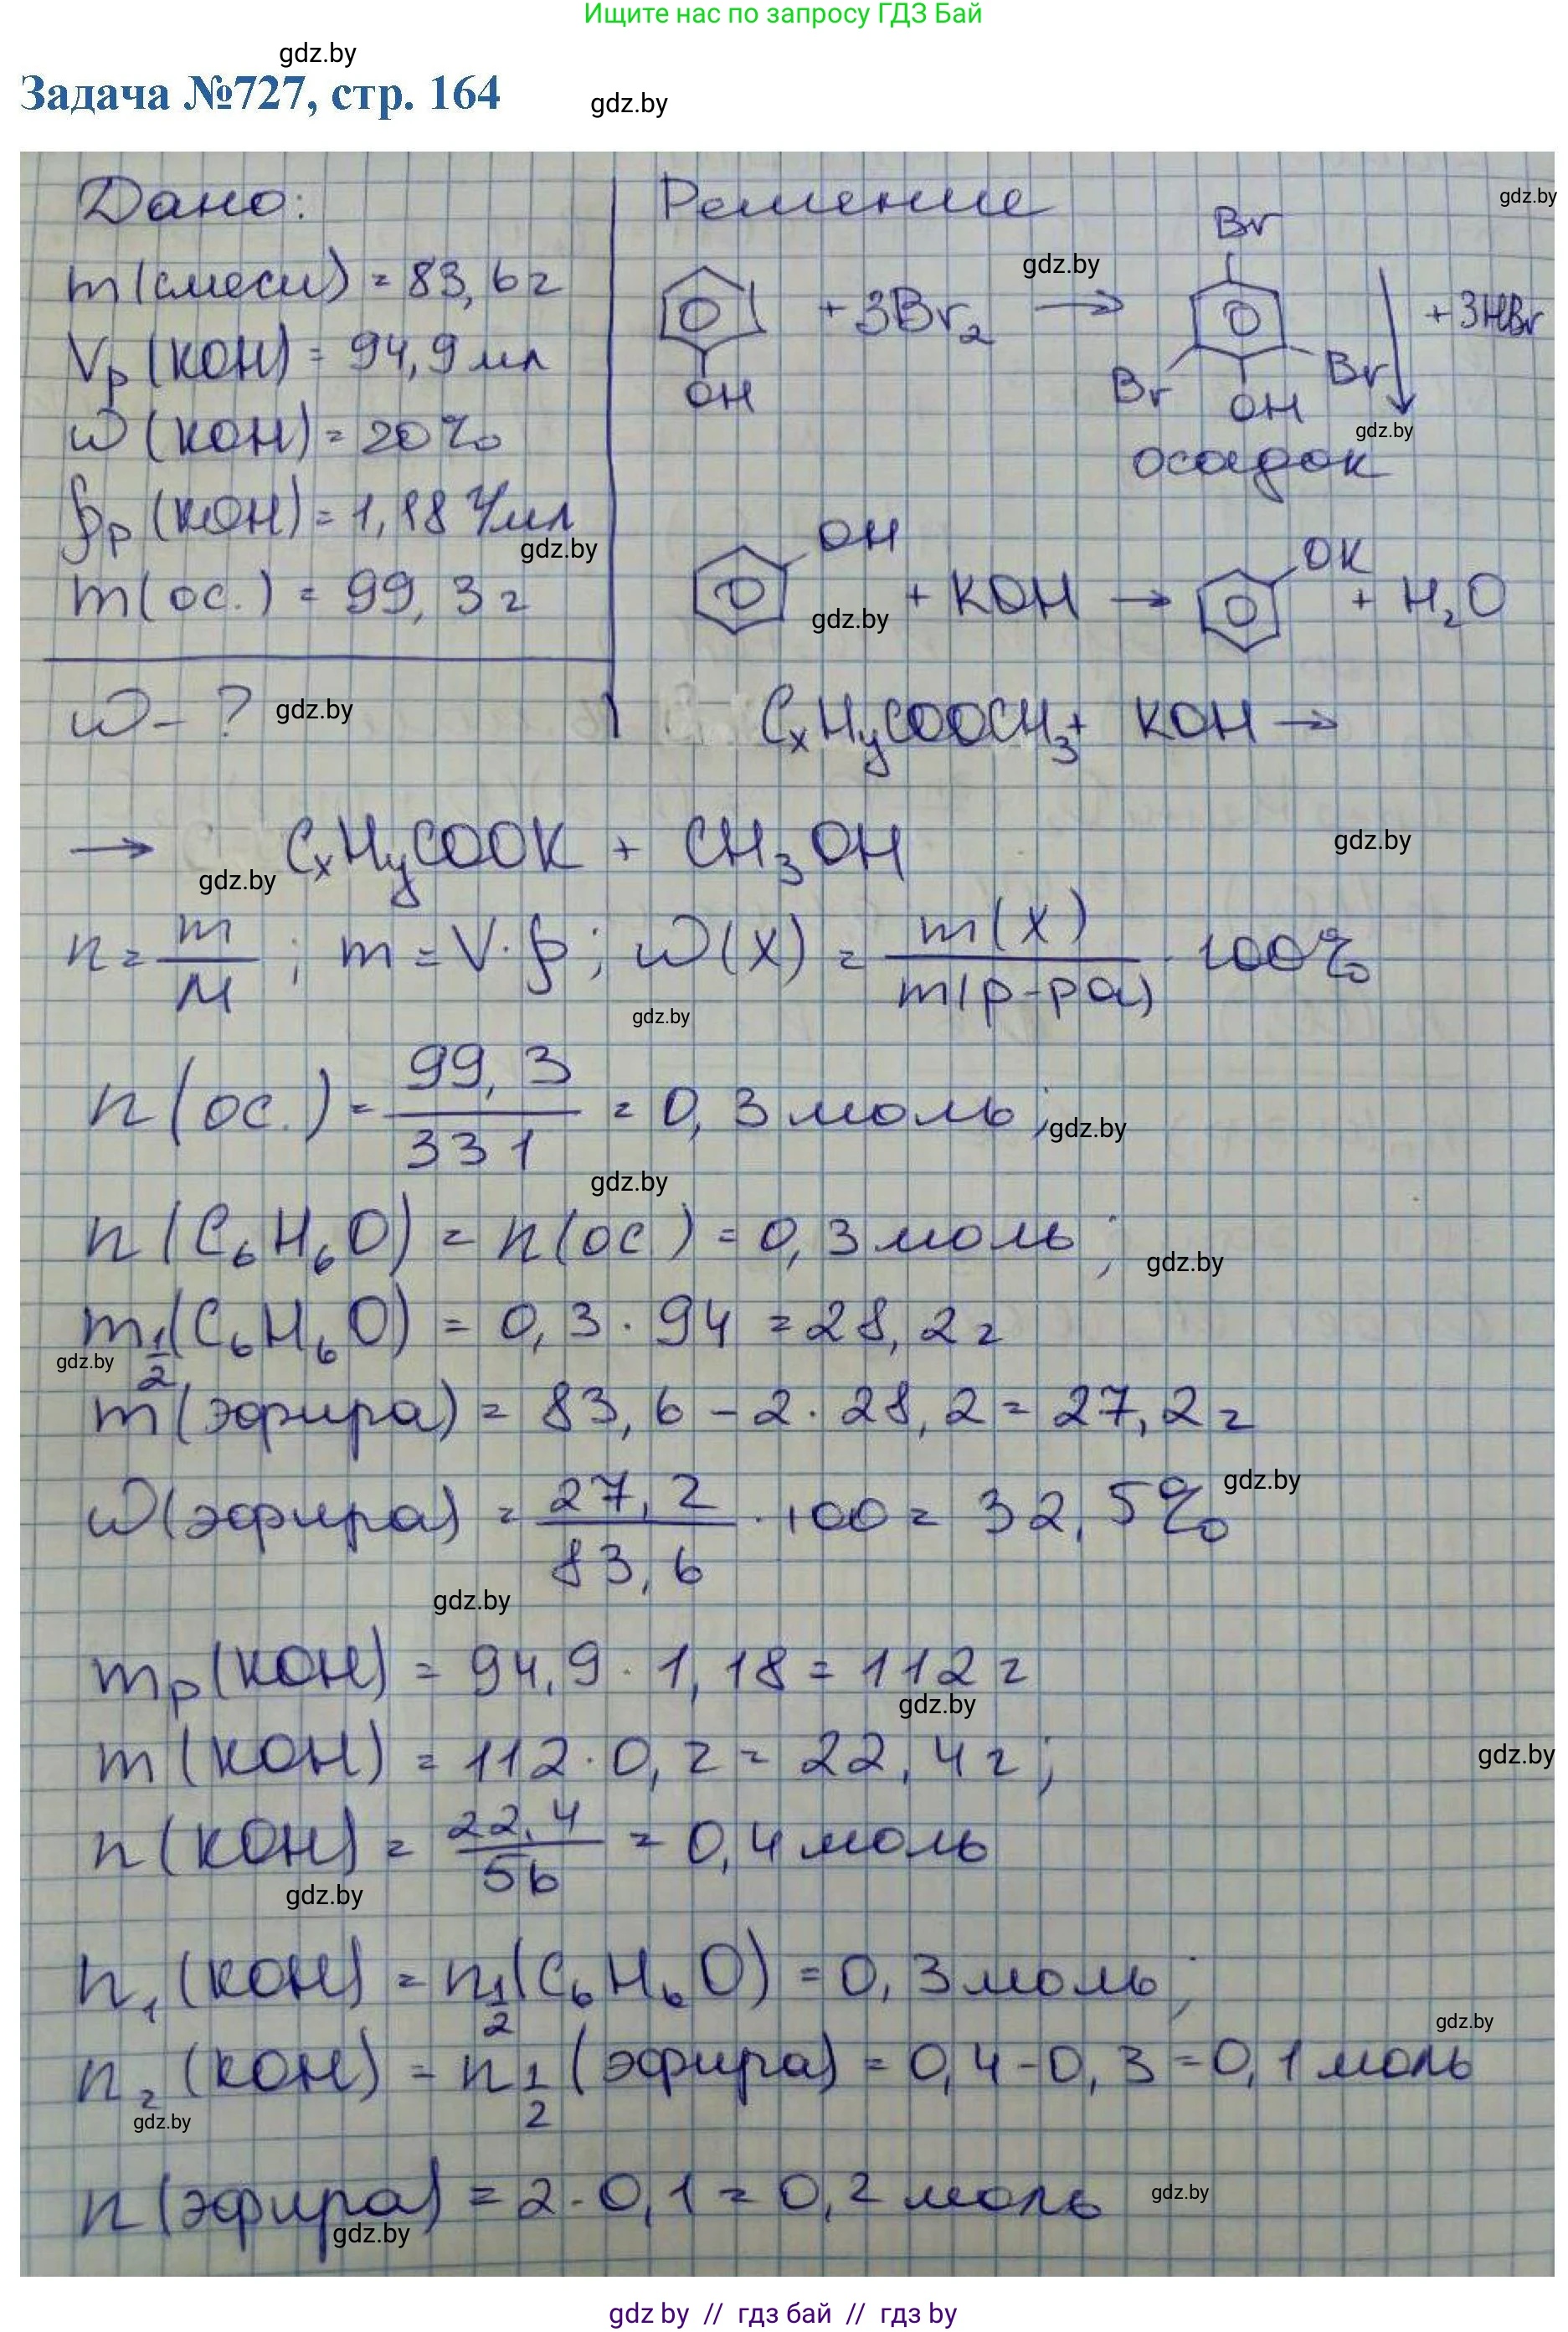 Ищите нас по запросу ГДЗ Бай
gdz.by
Задача №727, стр. 164
gdz.by
Дано:
Решение
gdz.by
m(смеси) = 83,6г
Vр(KOH) = 94,9 мл
ω(KOH) = 20%
ρр(KOH) = 1,18 г/мл
gdz.by
m(ос.) = 99,3г
ω - ?
gdz.by
gdz.by
OH
+ 3Br₂ →
Br
Br
OH
Br
↓ + 3HBr
gdz.by
осадок
OH
gdz.by
+ KOH →
OK
+ H₂O
CxHyCOOCH₃ + KOH →
→ CxHyCOOK + CH₃OH
gdz.by
gdz.by
n = m/M ; m = V·ρ ; ω(X) = m(X)/m(р-ра) · 100%
gdz.by
n(ос.) = 99,3/331 = 0,3 моль;
gdz.by
gdz.by
n(C₆H₆O) = n(ос) = 0,3 моль;
gdz.by
m½(C₆H₆O) = 0,3 · 94 = 28,2г
gdz.by
m(эфира) = 83,6 - 2·28,2 = 27,2г
ω(эфира) = 27,2/83,6 · 100 = 32,5%
gdz.by
gdz.by
mр(KOH) = 94,9 · 1,18 = 112г
gdz.by
m(KOH) = 112·0,2 = 22,4г;
gdz.by
n(KOH) = 22,4/56 = 0,4 моль
gdz.by
n₁(KOH) = n½(C₆H₆O) = 0,3 моль;
gdz.by
n₂(KOH) = n½(эфира) = 0,4-0,3 = 0,1 моль
gdz.by
n(эфира) = 2·0,1 = 0,2 моль
gdz.by
gdz.by
gdz by // гдз бай // гдз by